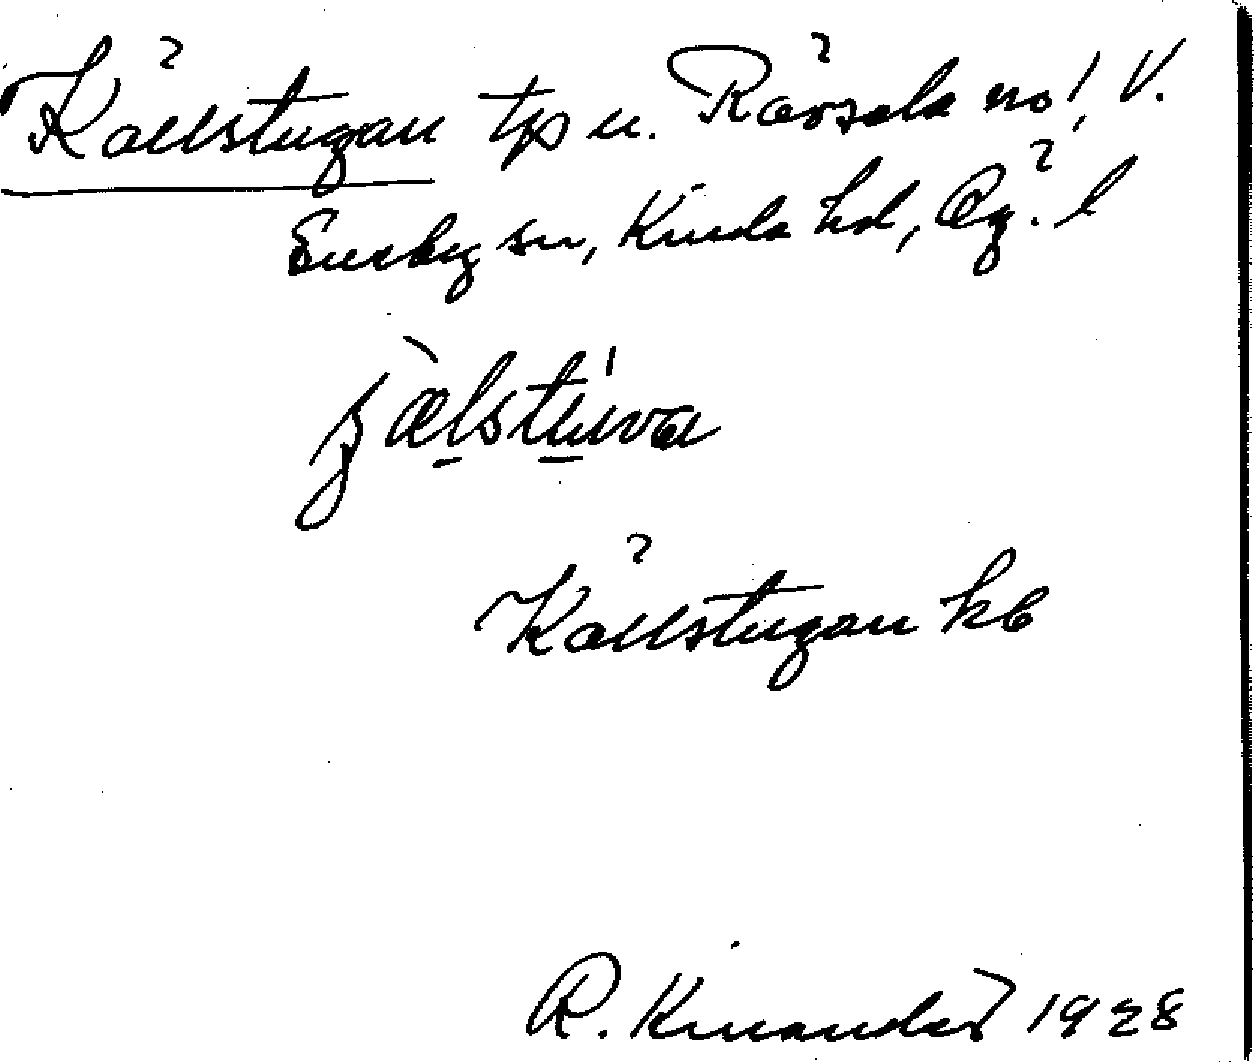 Källstugan tp u. Rävsala no 1, V.
Eneby sn, Kinda hd, Ög. l
Källstugan kb
R. Kinander 1928